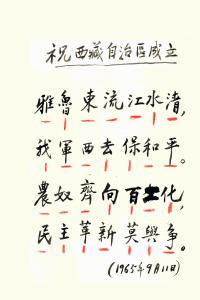 祝西藏自治區成立
雅魯東流江水清,
我軍西去保和平。
農奴齊向百土化,
民主革新莫與爭。
(1965年9月11日)